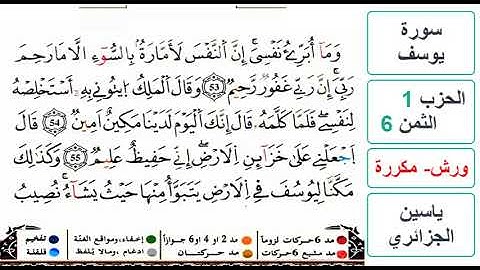 وَمَآ أُبَرِّۓُ نَفْسِيَ إِنَّ اَ۬لنَّفْسَ لَأَمَّارَةُۢ بِالسُّوٓءِ الَّا مَا رَحِمَ
رَبِّيَ إِنَّ رَبِّے غَفُورٞ رَّحِيمٞ 53 وَقَالَ اَ۬لْمَلِكُ اُ۪يتُونِے بِهِۦٓ أَسْتَخْلِصْهُ
لِنَفْسِے فَلَمَّا كَلَّمَهُۥ قَالَ إِنَّكَ اَ۬لْيَوْمَ لَدَيْنَا مَكِينٌ اَمِينٞ 54 قَالَ
اَ۪جْعَلْنِے عَلَىٰ خَزَآئِنِ اِ۬لَارْضِ إِنِّے حَفِيظٌ عَلِيمٞ 55 وَكَذَٰلِكَ
مَكَّنَّا لِيُوسُفَ فِے اِ۬لَارْضِ يَتَبَوَّأُ مِنْهَا حَيْثُ يَشَآءُ نُصِيبُ
مد 6 حركات لزوماً
مد 2 او 4 او 6 جوازاً
إخفاء، ومواقع الغنّة
تفخيم
مد مشبع 6 حركات
مد حركتان
ادغام، ومالا يلفظ
قلقلة
سورة
يوسف
الحزب 1
الثمن 6
ورش- مكررة
ياسين
الجزائري